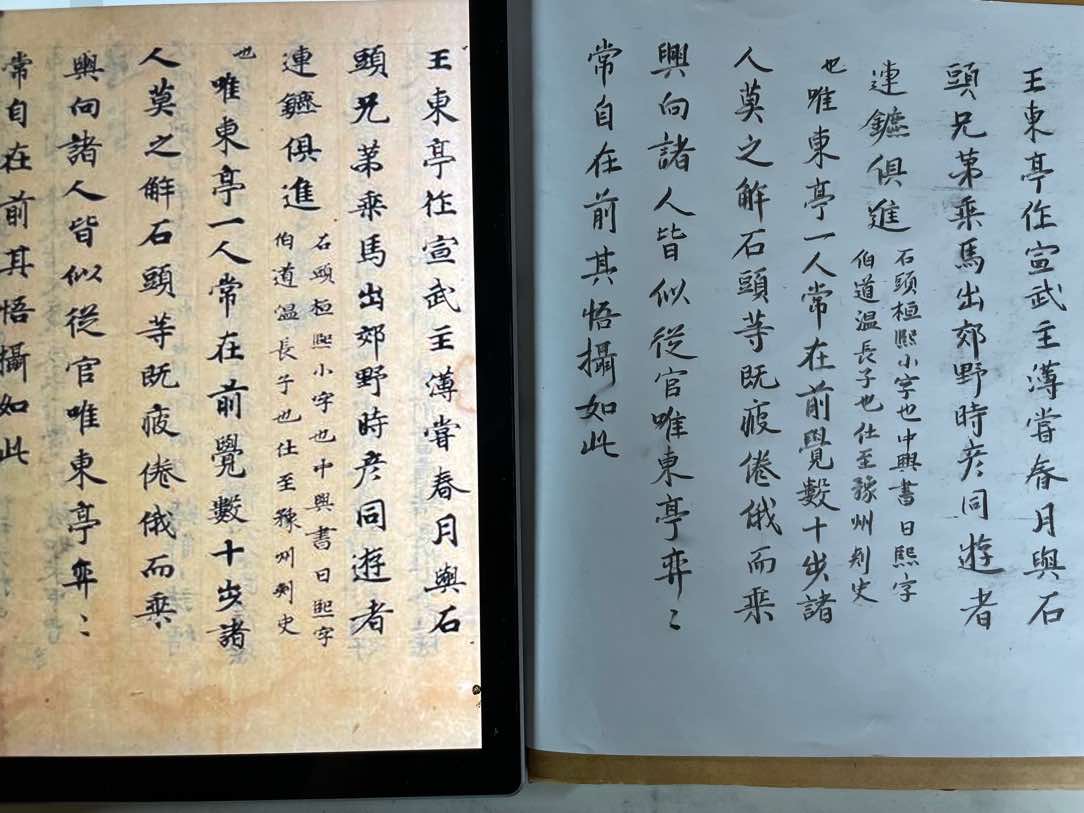 王東亭作宣武主薄嘗春月與石
頭兄弟乘馬出郊野時彦同遊者
連鑣俱進
石頭桓熙小字也中興書曰熙字
伯道温長子也仕至豫州刾史
也唯東亭一人常在前覺數十步諸
人莫之解石頭等既疲倦俄而乘
輿向諸人皆似從官唯東亭弈〻
常自在前其悟攝如此
王東亭作宣武主薄嘗春月與石
頭兄弟乘馬出郊野時彦同遊者
連鑣俱進
石頭桓熙小字也中興書曰熙字
伯道温長子也仕至豫州刾史
也唯東亭一人常在前覺數十步諸
人莫之解石頭等既疲倦俄而乘
輿向諸人皆似從官唯東亭弈〻
常自在前其悟攝如此